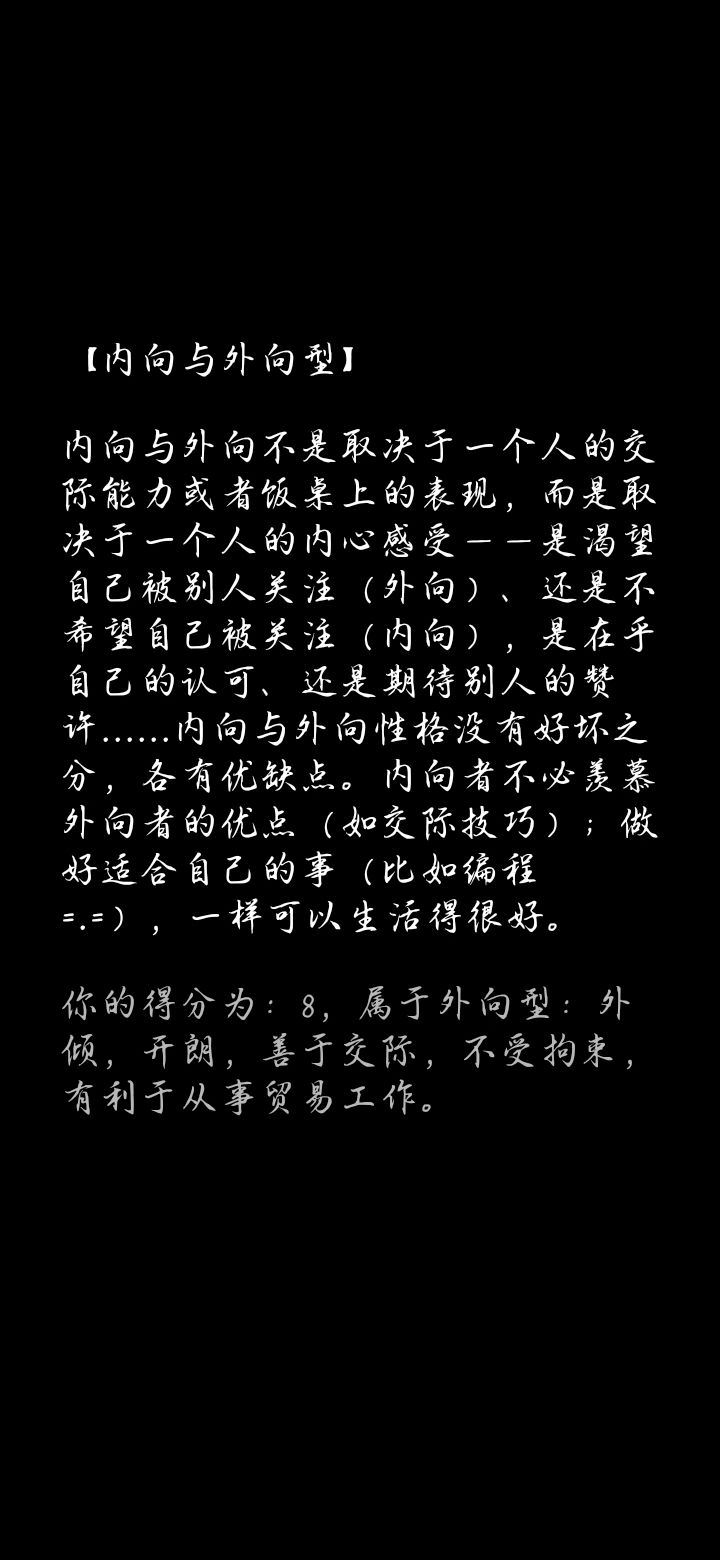 【内向与外向型】
内向与外向不是取决于一个人的交
际能力或者饭桌上的表现，而是取
决于一个人的内心感受——是渴望
自己被别人关注（外向）、还是不
希望自己被关注（内向），是在乎
自己的认可、还是期待别人的赞
许……内向与外向性格没有好坏之
分，各有优缺点。内向者不必羡慕
外向者的优点（如交际技巧）；做
好适合自己的事（比如编程
=.=），一样可以生活得很好。
你的得分为：8，属于外向型：外
倾，开朗，善于交际，不受拘束，
有利于从事贸易工作。